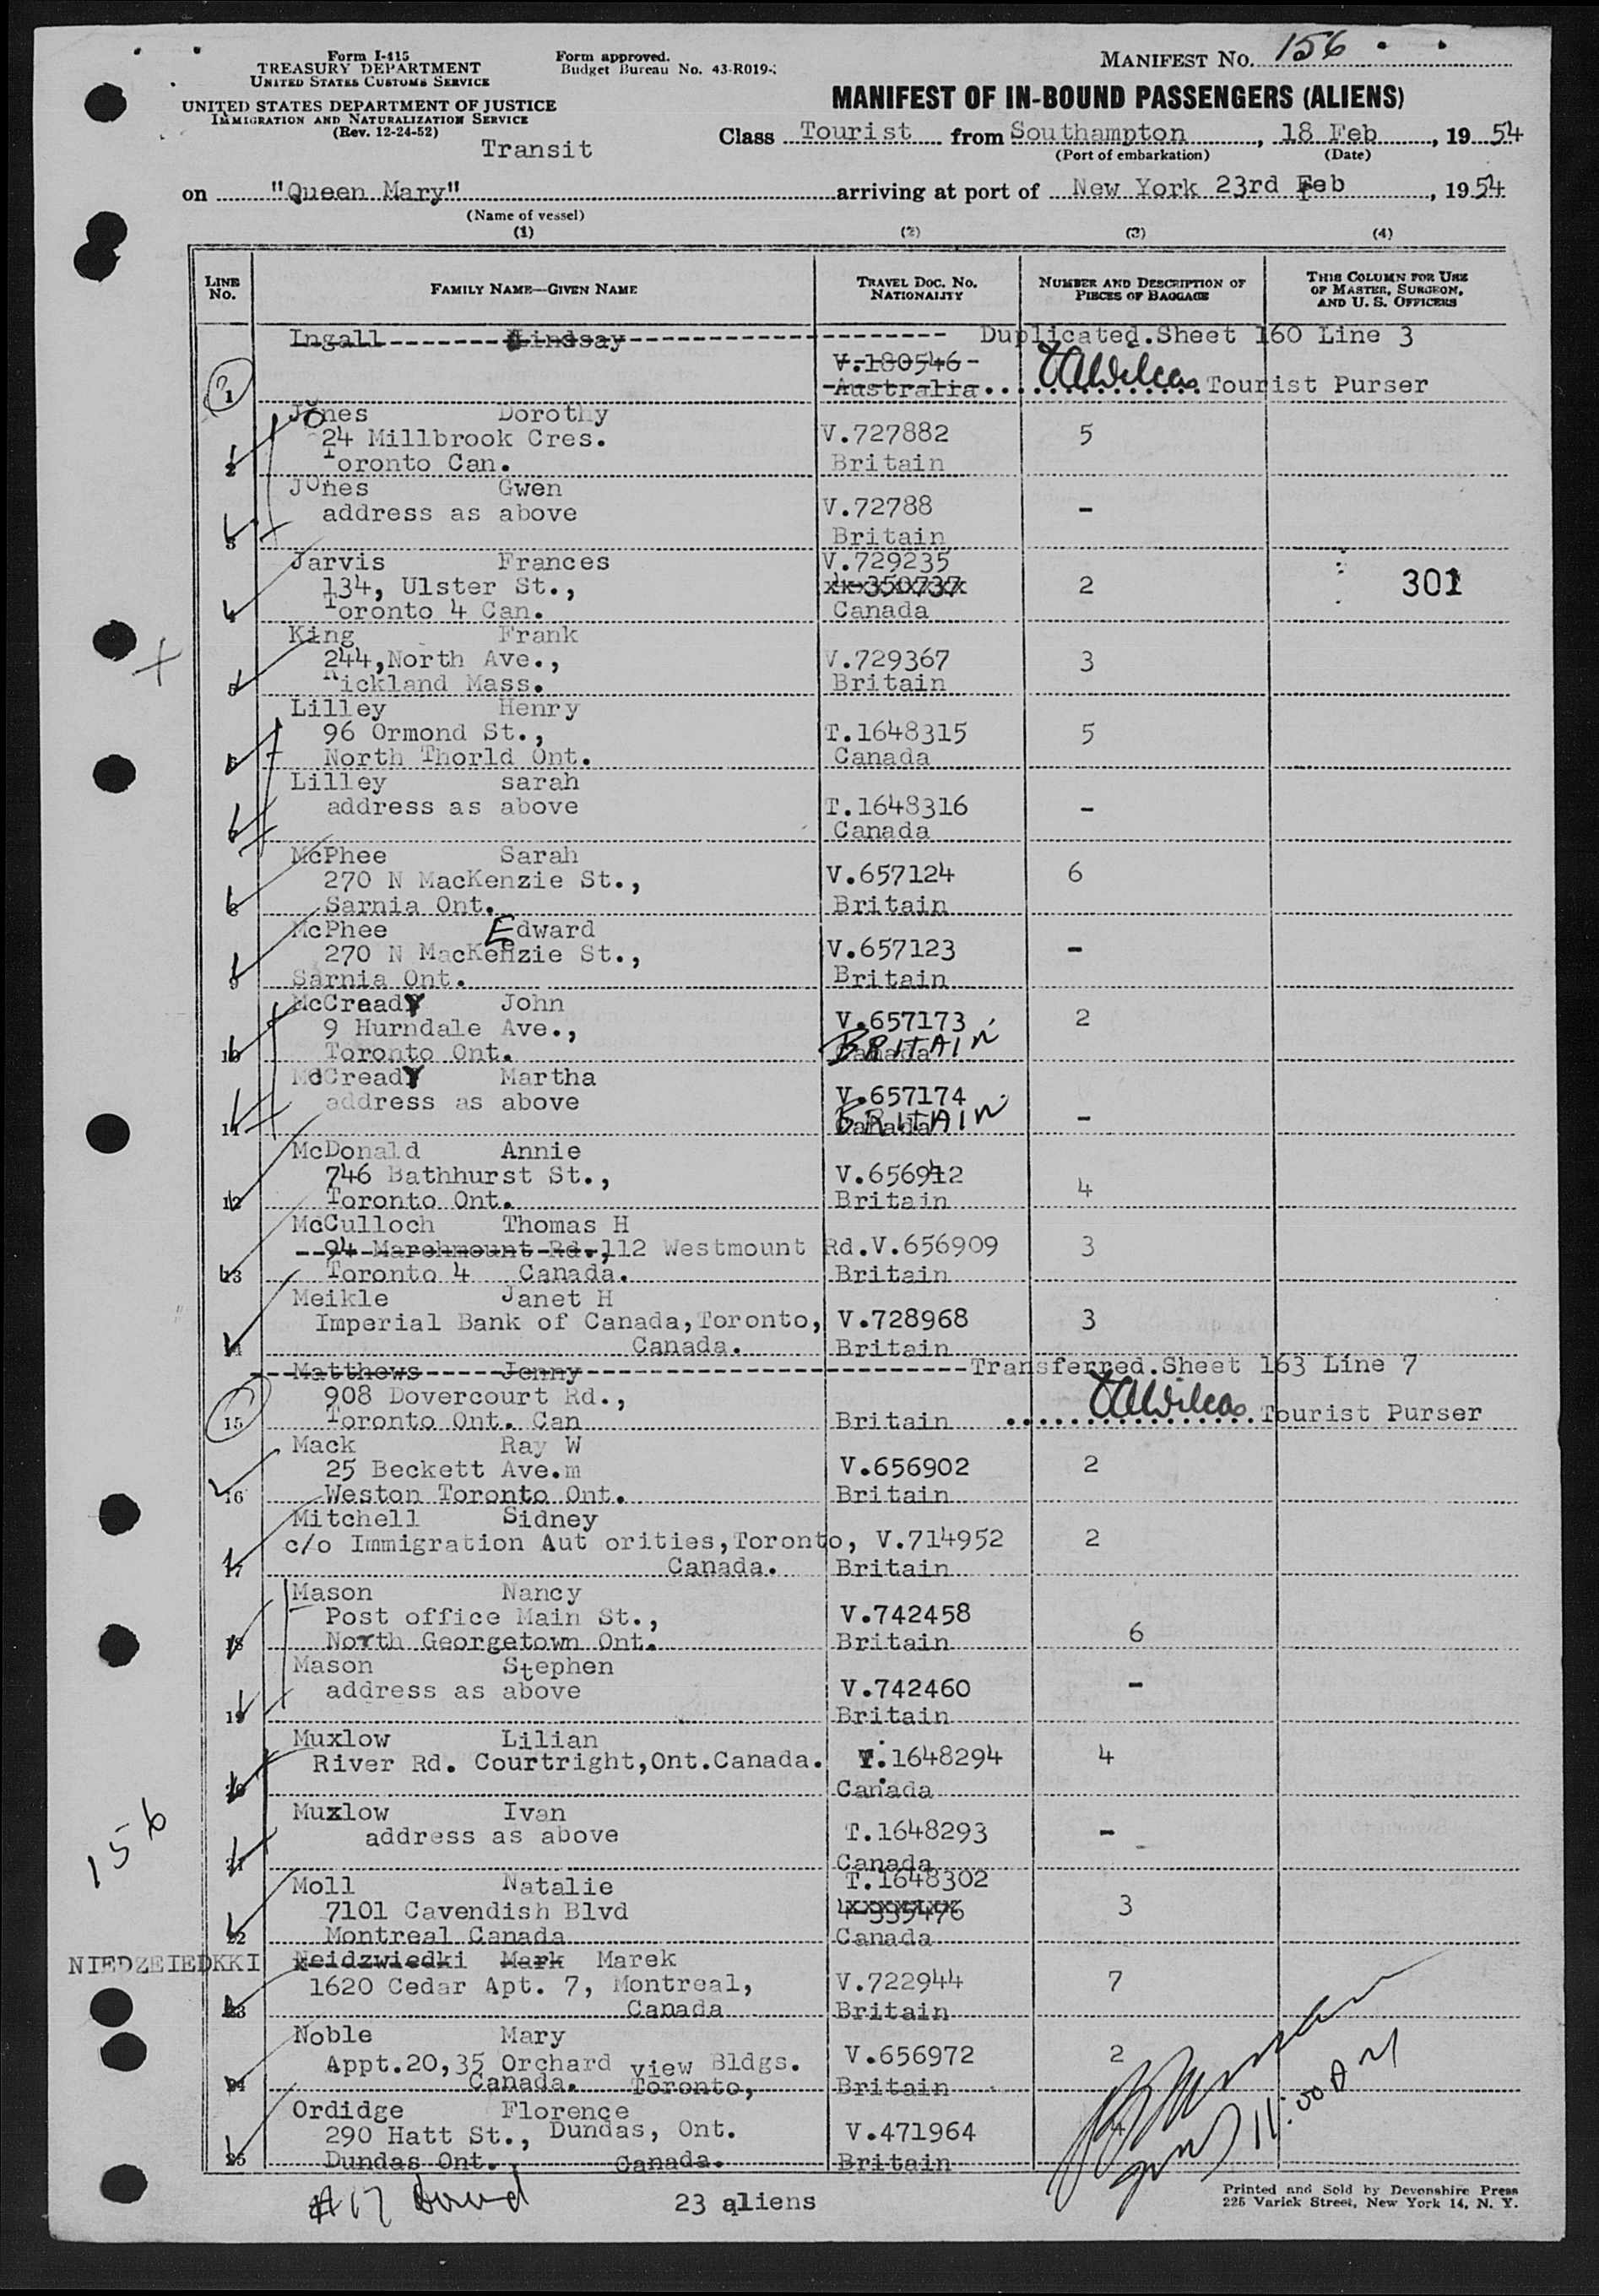 Form I-415
TREASURY DEPARTMENT
UNITED STATES CUSTOMS SERVICE
UNITED STATES DEPARTMENT OF JUSTICE
IMMIGRATION AND NATURALIZATION SERVICE
(Rev. 12-24-52)
Transit
Form approved.
Budget Bureau No. 43-R019-
MANIFEST NO. 156
MANIFEST OF IN-BOUND PASSENGERS (ALIENS)
Class Tourist from Southampton, 18 Feb, 1954
(Port of embarkation) (Date)
on "Queen Mary" arriving at port of New York 23rd Feb, 1954
(Name of vessel)
(1) (2) (3) (4)
LINE NO. FAMILY NAME—GIVEN NAME TRAVEL DOC. NO. NATIONALITY NUMBER AND DESCRIPTION OF PIECES OF BAGGAGE THIS COLUMN FOR USE OF MASTER, SURGEON, AND U. S. OFFICERS
Ingall Lindsay Duplicated.Sheet 160 Line 3
V.180546
1 Australia Tourist Purser
Jones Dorothy
24 Millbrook Cres. V.727882 5
2 Toronto Can. Britain
Jones Gwen
address as above V.72788 -
3 Britain
Jarvis Frances V.729235
134, Ulster St., 350737 2 301
4 Toronto 4 Can. Canada
King Frank
244,North Ave., V.729367 3
5 ickland Mass. Britain
Lilley Henry
96 Ormond St., T.1648315 5
6 North Thorld Ont. Canada
Lilley sarah
address as above T.1648316 -
7 Canada
McPhee Sarah
270 N MacKenzie St., V.657124 6
8 Sarnia Ont. Britain
McPhee Edward
270 N MacKenzie St., V.657123 -
9 Sarnia Ont. Britain
McCready John
9 Hurndale Ave., V.657173 2
10 Toronto Ont. Canada BRITAIN
McCready Martha
address as above V.657174
11 Canada BRITAIN -
McDonald Annie
746 Bathhurst St., V.656912 4
12 Toronto Ont. Britain
McCulloch Thomas H
94 Marchmount Rd.,112 Westmount Rd.V.656909 3
13 Toronto 4 Canada. Britain
Meikle Janet H
Imperial Bank of Canada,Toronto, V.728968 3
14 Canada. Britain
Matthews Jenny Transferred.Sheet 163 Line 7
908 Dovercourt Rd.,
15 Toronto Ont. Can Britain Tourist Purser
Mack Ray W
25 Beckett Ave.m V.656902 2
16 Weston Toronto Ont. Britain
Mitchell Sidney
c/o Immigration Aut orities,Toronto, V.714952 2
17 Canada. Britain
Mason Nancy
Post office Main St., V.742458
18 North Georgetown Ont. Britain 6
Mason Stephen
address as above V.742460 -
19 Britain
Muxlow Lilian
River Rd. Courtright,Ont.Canada. T.1648294 4
20 Canada
Muxlow Ivan
address as above T.1648293 -
21 Canada
Moll Natalie T.1648302
7101 Cavendish Blvd 335476 3
22 Montreal Canada Canada
NIEDZEIEDKKI Neidzwiedki Mark Marek
1620 Cedar Apt. 7, Montreal, V.722944 7
23 Canada Britain
Noble Mary
Appt.20,35 Orchard view Bldgs. V.656972 2
24 Canada. Toronto, Britain
Ordidge Florence
290 Hatt St., Dundas, Ont. V.471964 4
25 Dundas Ont. Canada. Britain
156
11:00 AM
23 aliens
Printed and Sold by Devonshire Press
225 Varick Street, New York 14, N. Y.